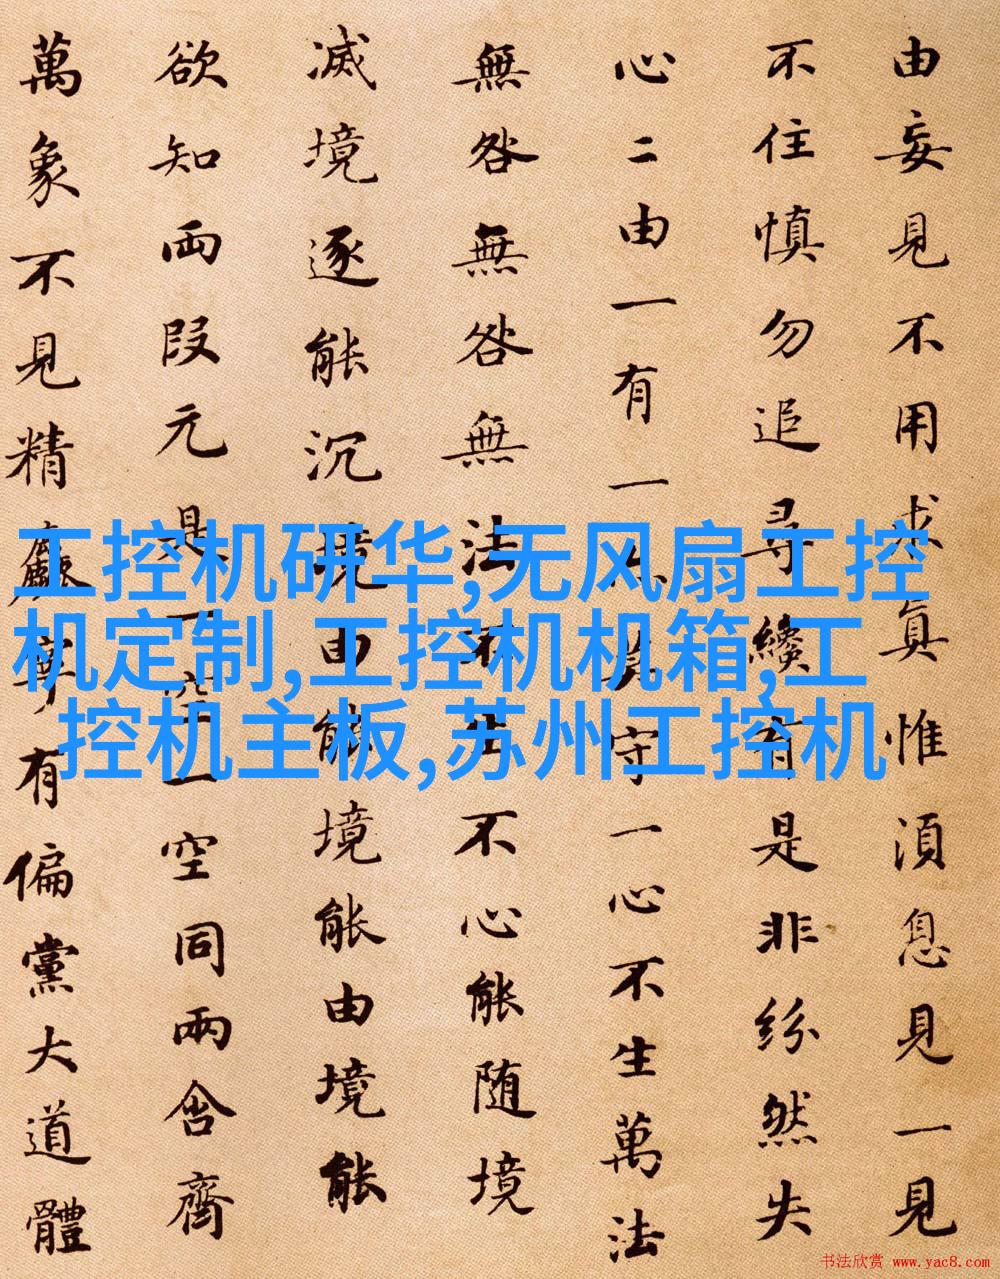 由妄見不用求真惟湏息見一見
不住慎勿追尋纔有是非紛然失
心二由一有一亦莫守一心不生萬法
無咎無咎無法不生不心能随境
滅境逐能沉境由能境能由境能
欲知両段元是一空一空同兩含齊
萬象不見精麤寧有偏黨大道體
工控机研华,无风扇工控
机定制,工控机机箱,工
控机主板,苏州工控机
书法欣赏 www.yac8.com